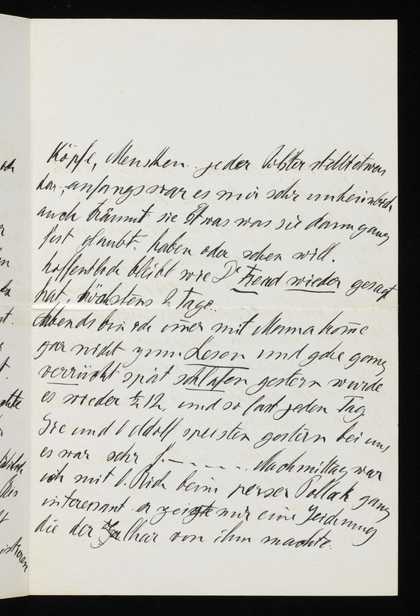 Köpfe, Menschen.. jeder Polster stellt etwas
dar, anfangs war es mir sehr unheimlich
auch träumt sie Etwas was sie dann ganz
fest glaubt. haben oder sehen will.
hoffentlich bleibt wie Dr Freud wieder gesagt
hat, höchstens 2 Tage.
Abends bin ich immer mit Mamma komme
gar nicht zum Lesen und gehe ganz
verrückt spät schlafen gestern wurde
es wieder ½ 12, und so fast jeden Tag
und speisten gestern bei uns
es war sehr !– – – – – – Nachmittag war
ich mit beim perser Pollak ganz
interessant er zeigte mir eine Zeichnung
die der von ihm machte.